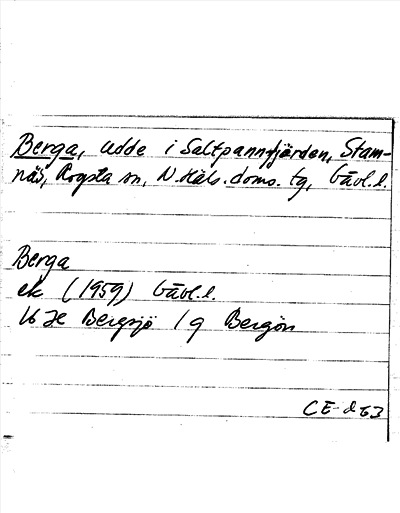 Berga, udde i Saltpannfjärden, Stam-
näs, Rogsta sn, N. Häls. doms. tg, Gävl. l.
Berga
ek (1959) Gävl. l.
16 H Bergsjö / g Bergön